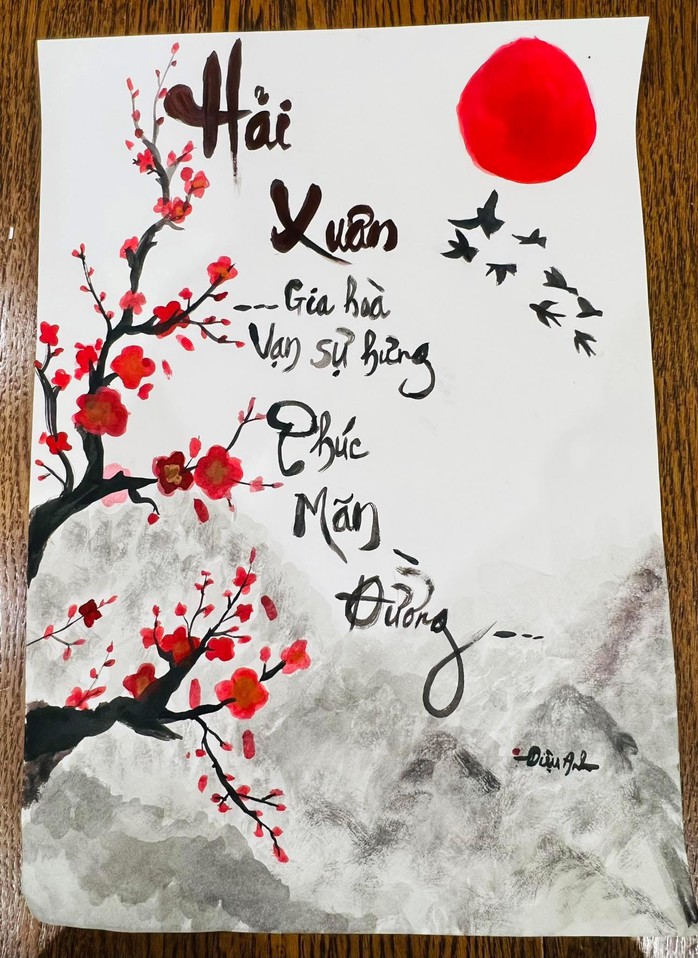 Hải
Xuân
---Gia hoà
Vạn sự hưng
Phúc
Mãn
Đường---
Diệu Anh